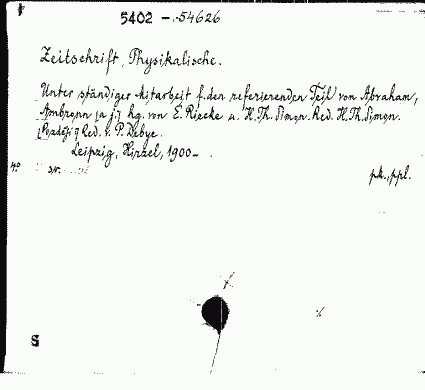 5402 - 54626
Zeitschrift, Physikalische.
Unter ständiger Mitarbeit f. den referierenden Teil von Abraham,
Ambronn [a j.] hg. von E. Riecke u. H. Th. Simon. Red. H. Th. Simon.
Red. v. P. Debye.
Leipzig, Hirzel, 1900-
4°
pk., ppl.
S